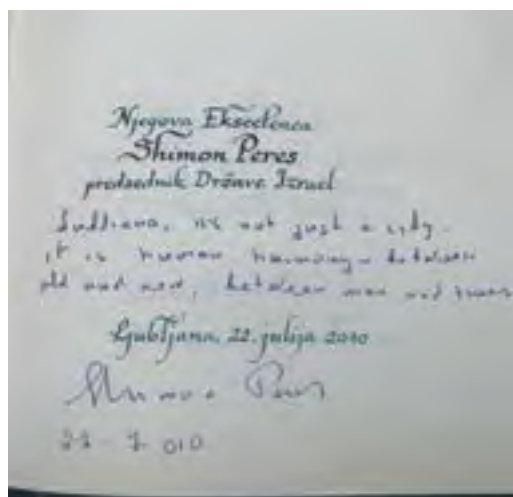 Njegova Ekscelenca
Shimon Peres
predsednik Države Izrael
is not just a city.
it is human harmony between
old and new, between man and
Ljubljana, 22. julija 2010
Shimon Peres
22 - 7 010